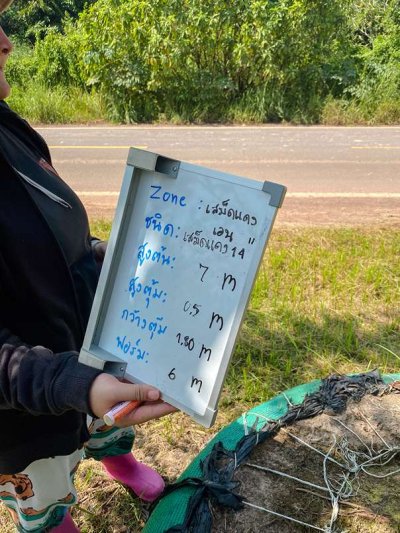 Zone : เสม็ดแดง
เอน
ชนิด: เสม็ดแดง 14"
สูงต้น: 7 m
สูงตุ้ม: 0.5 m
กว้างตุ้ม 1.80 m
ฟอร์ม: 6 m